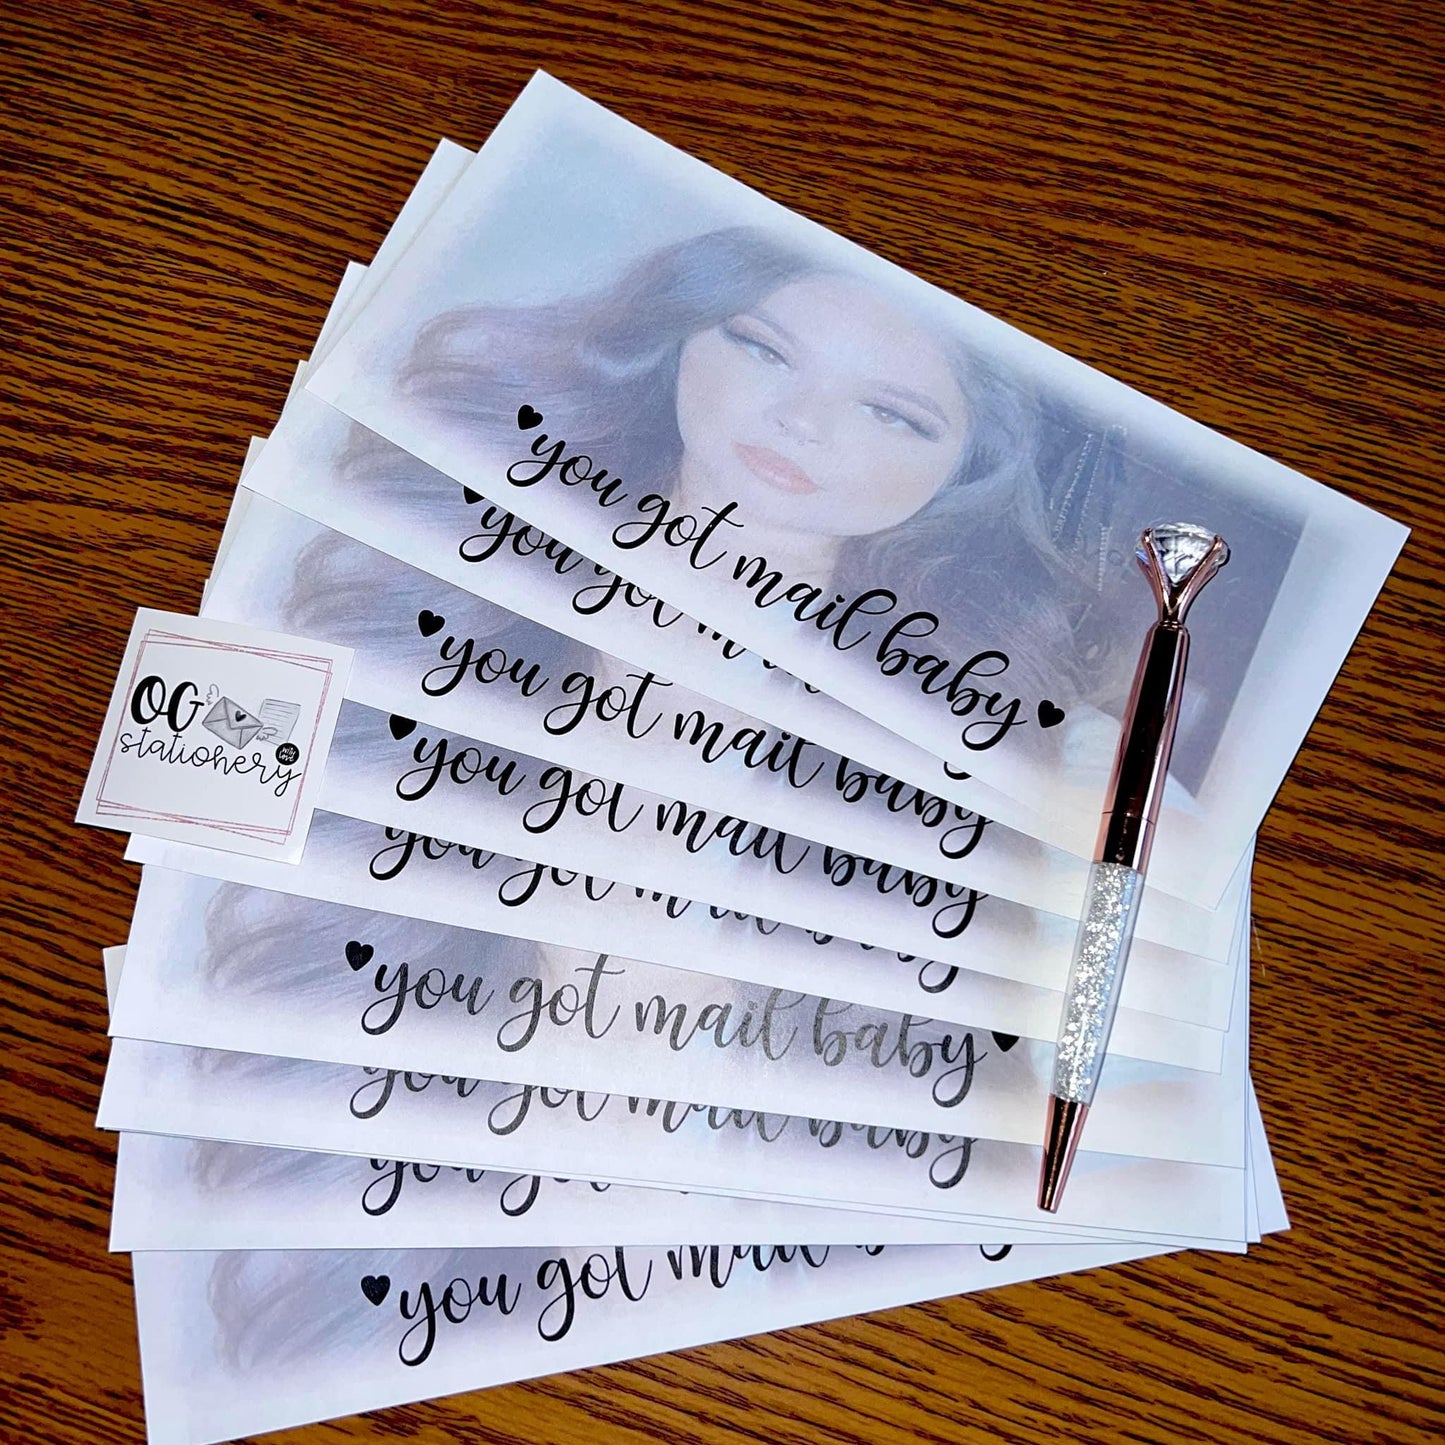 you got mail baby
you got mail
you got mail baby
you got mail baby
you got mail baby
you got mail baby
you got mail baby
you got mail baby
you got
you got mail baby
OG
stationery
with
love